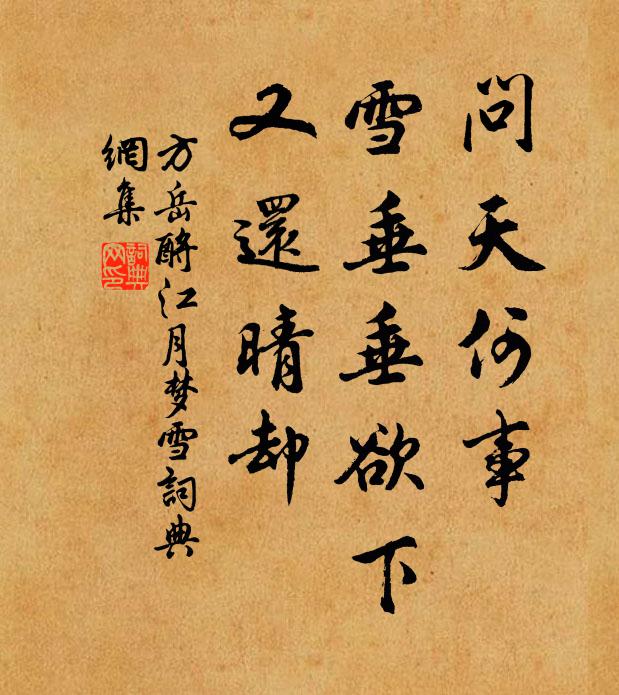 問天何事
雪垂垂欲下
又還晴却
方岳酹江月梦雪詞典
網集
詞典網印